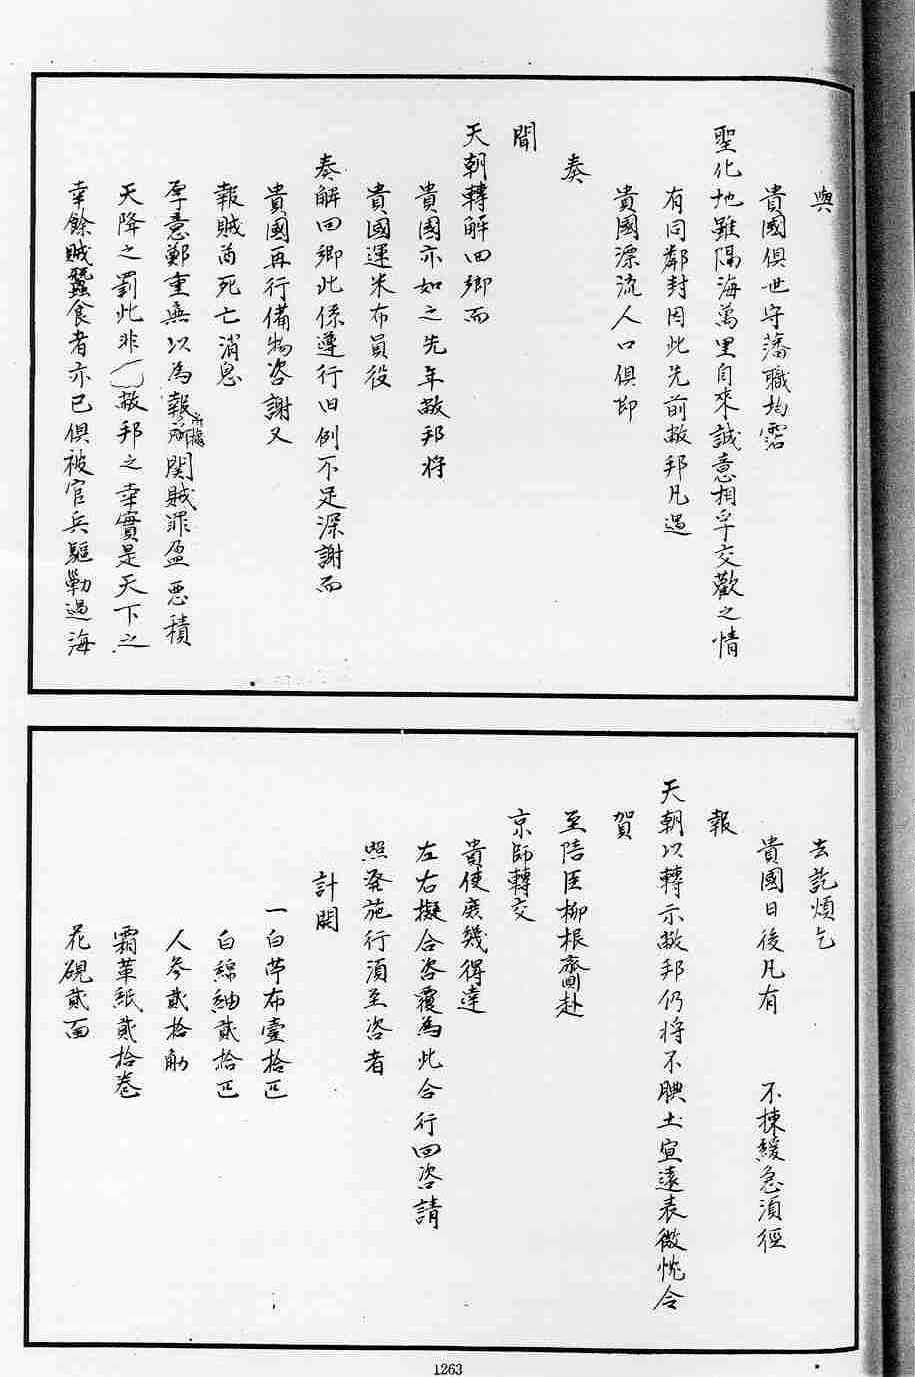 與
貴國俱世守藩職均霑
聖化地雖隔海萬里自來誠意相孚交歡之情
有同鄰封因此先前敝邦凡遇
貴國漂流人口俱即
奏
聞
天朝轉解回鄉而
貴國亦如之先年敝邦將
貴國運米布員役
奏解回鄉此係遵行旧例不足深謝而
貴國再行備物咨謝又
報賊酋死亡消息
厚意鄭重無以為報所關賊罪盈惡積
天降之罰此非敝邦之幸實是天下之
幸餘賊蠶食者亦已俱被官兵驅勦過海
去訖煩乞
貴國日後凡有 不揀緩急須徑
報
天朝以轉示敝邦仍將不腆土宜遠表微忱令
賀
至陪臣柳根齎回赴
京師轉交
貴使庶幾得達
左右擬合咨覆為此合行回咨請
照發施行須至咨者
計開
一白苧布壹拾匹
白綿紬貳拾匹
人參貳拾觔
霜華紙貳拾卷
花硯貳面
1263